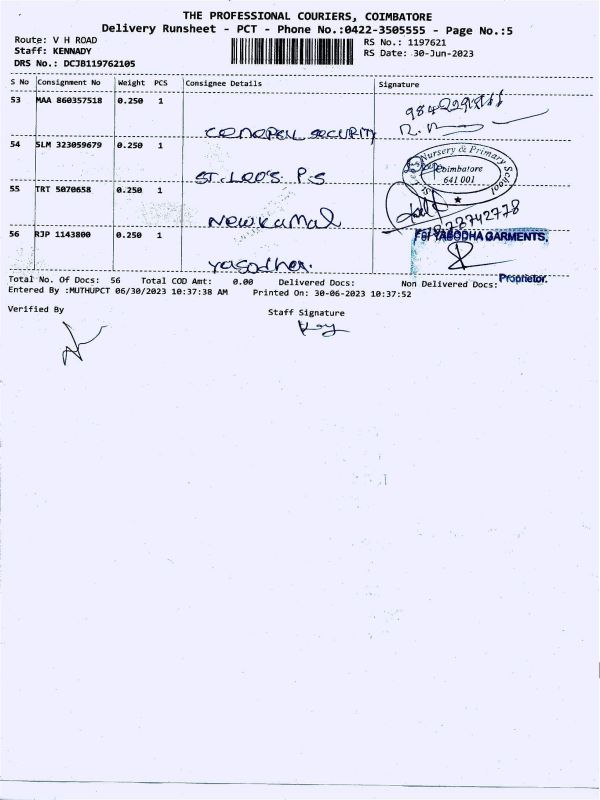 THE PROFESSIONAL COURIERS, COIMBATORE
Delivery Runsheet - PCT - Phone No.:0422-3505555 - Page No.:5
Route: V H ROAD
RS No.: 1197621
Staff: KENNADY
RS Date: 30-Jun-2023
DRS No.: DCJB119762105
S No Consignment No Weight PCS Consignee Details Signature
53 MAA 860357518 0.250 1
SECURITY
54 SLM 323059679 0.250 1
Nursery & Primary School
Coimbatore
641 001
ST. LEO'S. P.S
55 TRT 5070658 0.250 1
New Kamal
56 RJP 1143800 0.250 1
For YASODHA GARMENTS,
Yasodher.
Proprietor.
Total No. Of Docs: 56 Total COD Amt: 0.00 Delivered Docs: Non Delivered Docs:
Entered By :MUTHUPCT 06/30/2023 10:37:38 AM Printed On: 30-06-2023 10:37:52
Verified By
Staff Signature